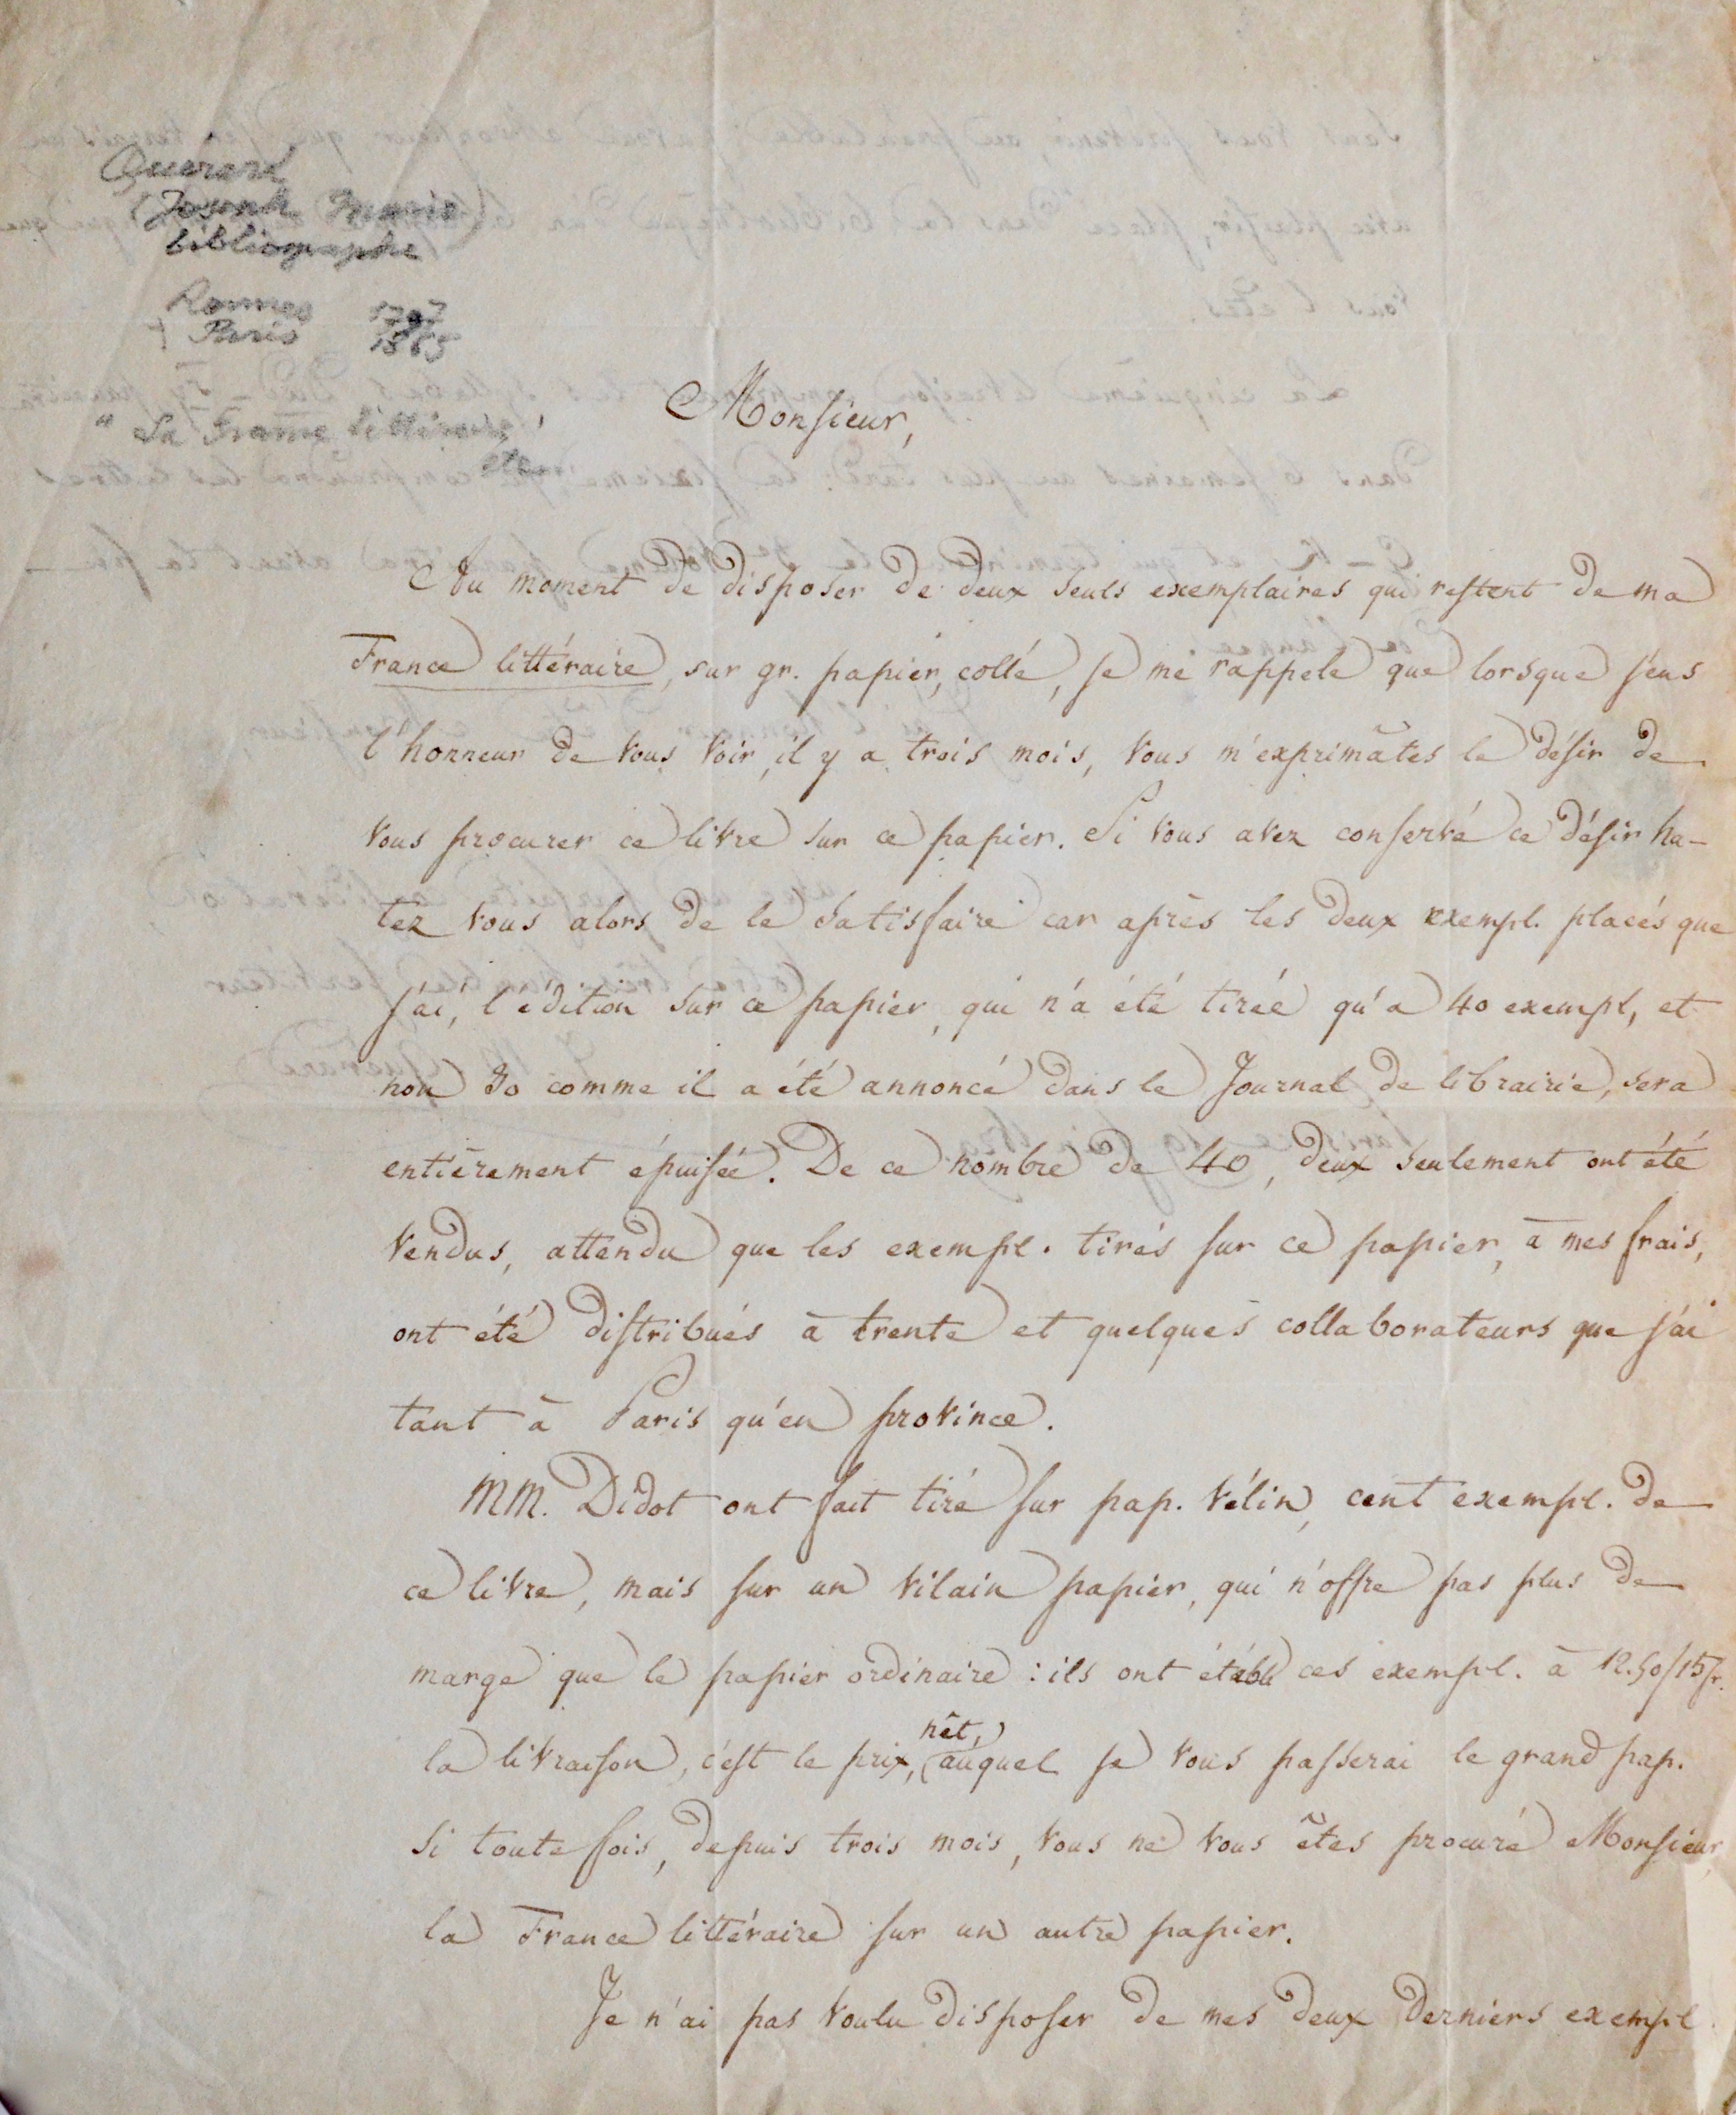 Querard
(Joseph Marie)
bibliographe
Rennes 1797
† Paris 1865
"La France littéraire"
etc.
Monsieur,
Au moment de disposer de deux seuls exemplaires qui restent de ma
France littéraire, sur gr. papier, collé, je me rappele que lorsque j'eus
l'honneur de vous voir, il y a trois mois, vous m'exprimâtes le désir de
vous procurer ce livre sur ce papier. Si vous avez conservé ce désir ha-
tez vous alors de le satisfaire car après les deux exempl. placés que
j'ai, l'édition sur ce papier, qui n'a été tirée qu'a 40 exempl, et
non 30 comme il a été annoncé dans le Journal de librairie, sera
entièrement épuisée. De ce nombre de 40, deux seulement ont été
vendus, attendu que les exempl. tirés sur ce papier, à mes frais,
ont été distribués à trente et quelques collaborateurs que j'ai
tant à Paris qu'en province.
MM. Didot ont fait tiré sur pap. vélin, cent exempl. de
ce livre, mais sur un vilain papier, qui n'offre pas plus de
marge que le papier ordinaire : ils ont établi ces exempl. à 12.50/15 fr.
la livraison, c'est le prix, nêt, auquel je vous passerai le grand pap.
si toute fois, depuis trois mois, vous ne vous êtes procuré Monsieur
la France littéraire sur un autre papier.
Je n'ai pas voulu disposer de mes deux derniers exempl.